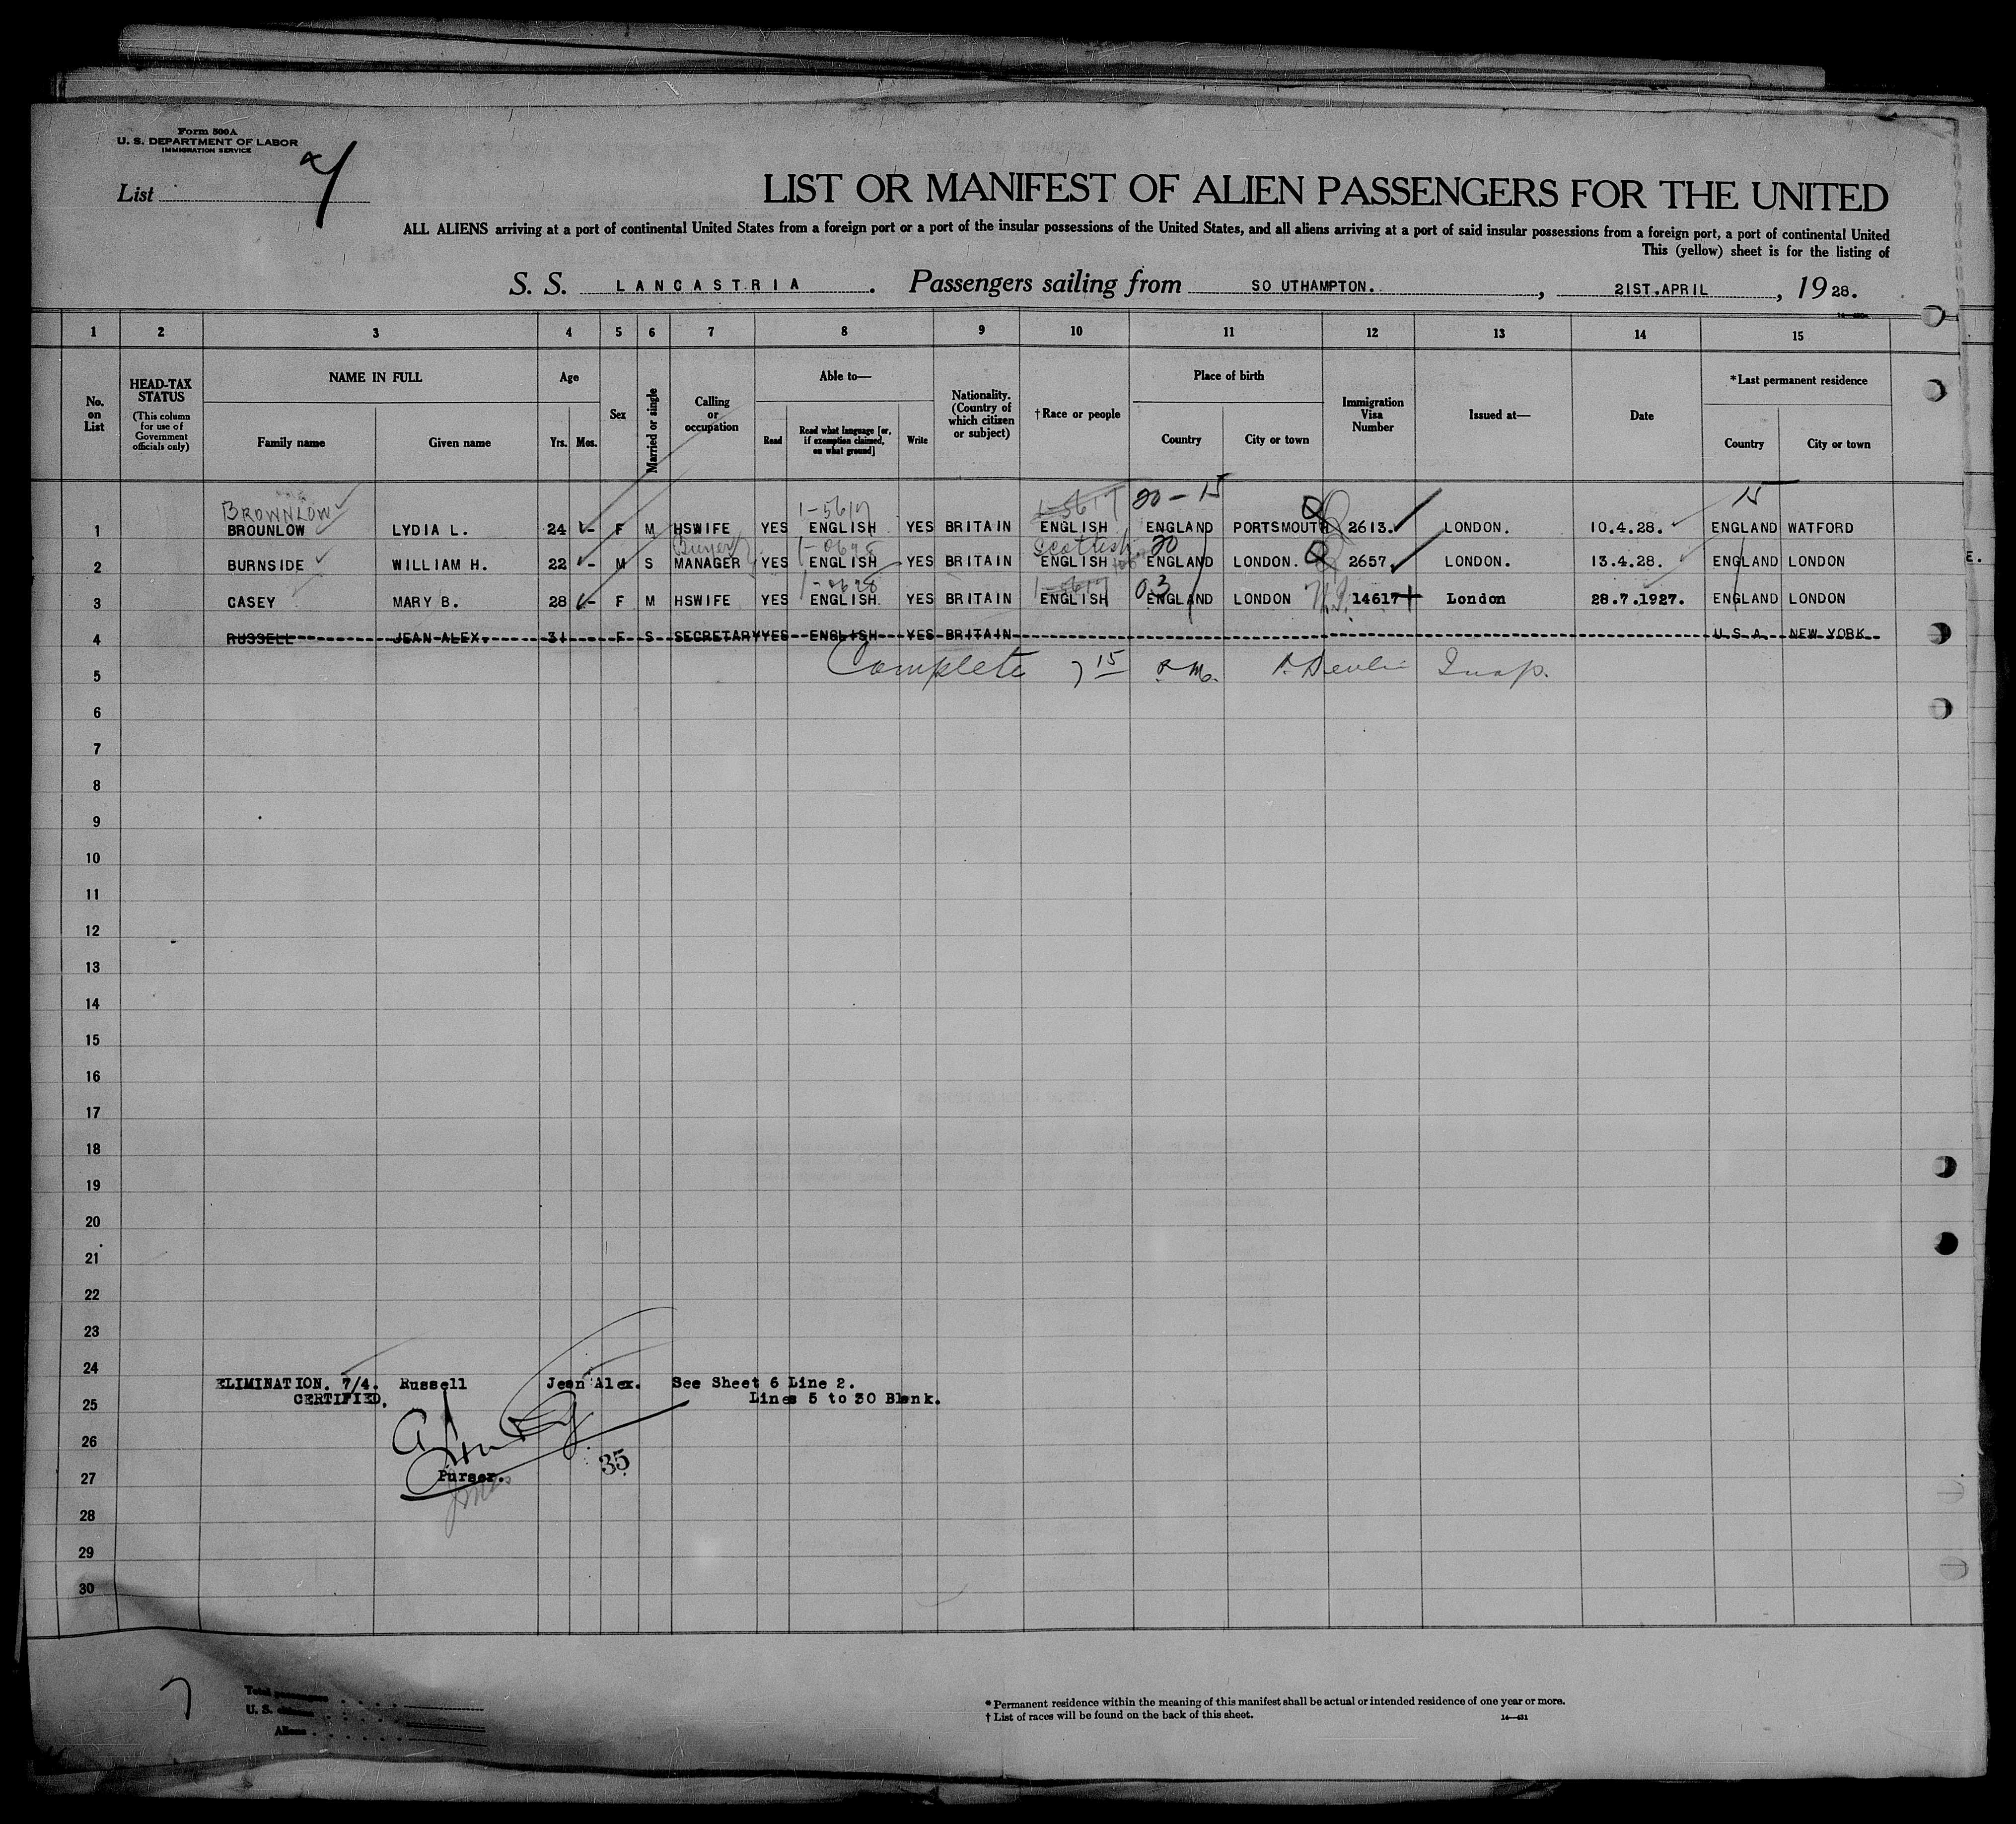 Form 500A
U. S. DEPARTMENT OF LABOR
IMMIGRATION SERVICE
List 7
LIST OR MANIFEST OF ALIEN PASSENGERS FOR THE UNITED
ALL ALIENS arriving at a port of continental United States from a foreign port or a port of the insular possessions of the United States, and all aliens arriving at a port of said insular possessions from a foreign port, a port of continental United
This (yellow) sheet is for the listing of
S. S. LANCASTRIA . Passengers sailing from SO UTHAMPTON. , 21ST.APRIL , 19 28.
1 2 3 4 5 6 7 8 9 10 11 12 13 14 15
No. on List
HEAD-TAX STATUS
(This column for use of Government officials only)
NAME IN FULL
Family name Given name
Age
Yrs. Mos.
Sex
Married or single
Calling or occupation
Able to—
Read
Read what language [or, if exemption claimed, on what ground]
Write
Nationality. (Country of which citizen or subject)
†Race or people
Place of birth
Country City or town
Immigration Visa Number
Issued at—
Date
*Last permanent residence
Country City or town
BROWNLOW 1-5617 1-5617 20-15 15
1 BROUNLOW LYDIA L. 24 - F M HSWIFE YES ENGLISH YES BRITAIN ENGLISH ENGLAND PORTSMOUTH 2613. LONDON. 10.4.28. ENGLAND WATFORD
Buyer Scottish 20
2 BURNSIDE WILLIAM H. 22 - M S MANAGER YES ENGLISH YES BRITAIN ENGLISH ENGLAND LONDON. 2657 LONDON. 13.4.28. ENGLAND LONDON E.
1-0628 1-5617 03
3 CASEY MARY B. 28 - F M HSWIFE YES ENGLISH. YES BRITAIN ENGLISH ENGLAND LONDON 14617 London 28.7.1927. ENGLAND LONDON
4 RUSSELL JEAN ALEX. 31 F S SECRETARY YES ENGLISH YES BRITAIN U.S.A. NEW YORK
5 Complete 7 15 P.M. Insp.
6
7
8
9
10
11
12
13
14
15
16
17
18
19
20
21
22
23
24
ELIMINATION. 7/4. Russell Jean Alex. See Sheet 6 Line 2.
CERTIFIED. Lines 5 to 30 Blank.
25
26
35
27 Purser.
28
29
30
7
Total passengers
U. S. citizens
Aliens
* Permanent residence within the meaning of this manifest shall be actual or intended residence of one year or more.
† List of races will be found on the back of this sheet.
14—431